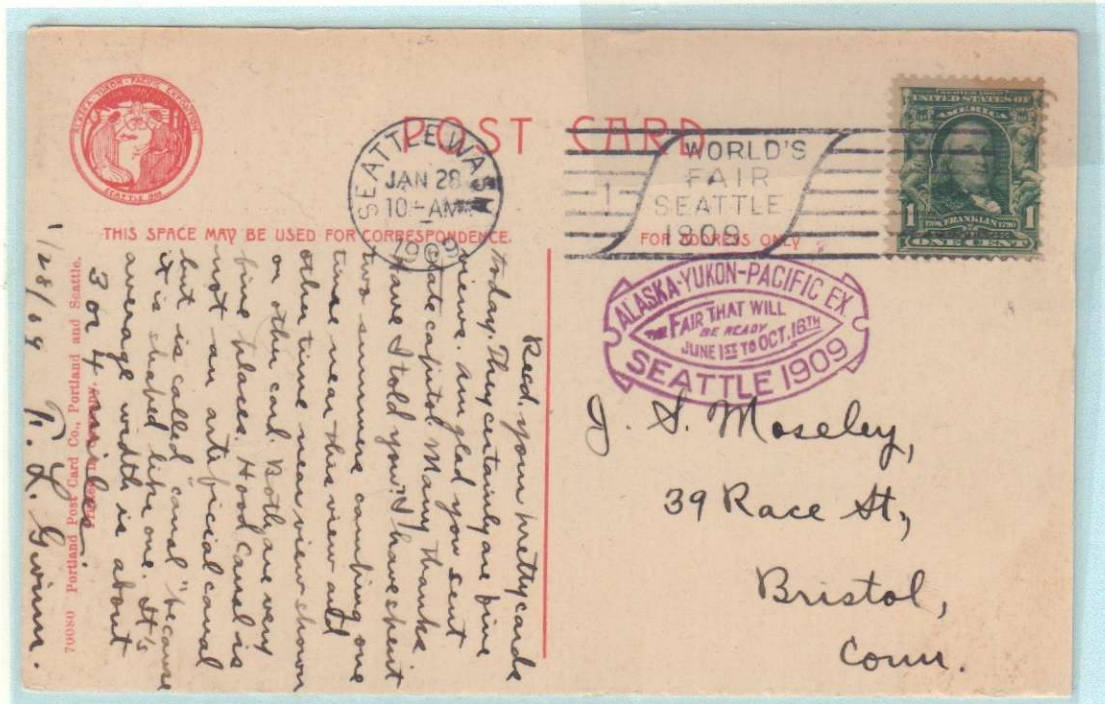 ALASKA-YUKON-PACIFIC EXPOSITION
SEATTLE 1909
POST CARD
SEATTLE, WASH
JAN 28
10-AM
1909
1
WORLD'S
FAIR
SEATTLE
1909
UNITED STATES OF
AMERICA
1 FRANKLIN 1
ONE CENT
THIS SPACE MAY BE USED FOR CORRESPONDENCE.
FOR ADDRESS ONLY
ALASKA-YUKON-PACIFIC EX.
THE FAIR THAT WILL
BE READY
JUNE 1ST TO OCT. 16TH
SEATTLE 1909
Recd. your pretty cards
today. They certainly are fine
views. am glad you sent
state capitol. Many thanks
Have I told you? I have spent
two summers camping one
time near this view and
other time near view shown
on other card. Both are very
fine places. Hood canal is
not an artificial canal
but is called canal "because
it is shaped like one. It's
average width is about
3 or 4 miles.
R. L. Gwinn.
1/28/09
70080 Portland Post Card Co., Portland and Seattle.
J. S. Moseley,
39 Race St.,
Bristol,
Conn.